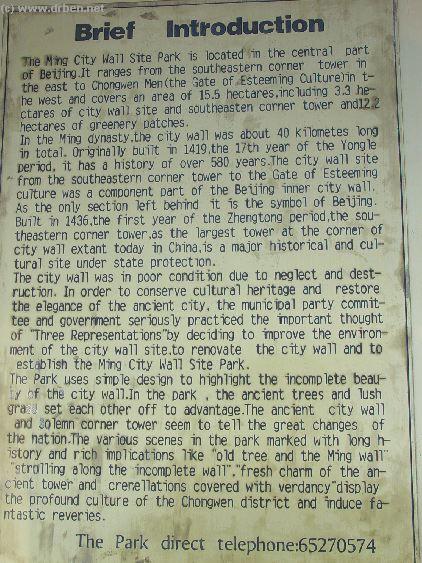 (c) www.drben.net
Brief Introduction
The Ming City Wall Site Park is located in the central part
of Beijing.It ranges from the southeastern corner tower in
the east to Chongwen Men(the Gate of Esteeming Culture)in t-
he west and covers an area of 15.5 hectares,including 3.3 he-
ctares of city wall site and southeasten corner tower and12.2
hectares of greenery patches.
In the Ming dynasty,the city wall was about 40 kilometes long
in total. Originally built in 1419,the 17th year of the Yongle
period, it has a history of over 580 years.The city wall site
from the southeastern corner tower to the Gate of Esteeming
culture was a component part of the Beijing inner city wall.
As the only section left behind it is the symbol of Beijing.
Built in 1436,the first year of the Zhengtong period,the sou-
theastern corner tower,as the largest tower at the corner of
city wall extant today in China,is a major historical and cul-
tural site under state protection.
The city wall was in poor condition due to neglect and dest-
ruction. In order to conserve cultural heritage and restore
the elegance of the ancient city, the municipal party commit-
tee and government seriously practiced the important thought
of "Three Representations"by deciding to improve the environ-
ment of the city wall site,to renovate the city wall and to
establish the Ming City Wall Site Park.
The Park uses simple design to highlight the incomplete beau-
ty of the city wall.In the park , the ancient trees and lush
grass set each other off to advantage.The ancient city wall
and solemn corner tower seem to tell the great changes of
the nation.The various scenes in the park marked with long h-
istory and rich implications like "old tree and the Ming wall"
"strolling along the incomplete wall","fresh charm of the an-
cient tower and crenellations covered with verdancy"display
the profound culture of the Chongwen district and induce fa-
ntastic reveries.
The Park direct telephone:65270574